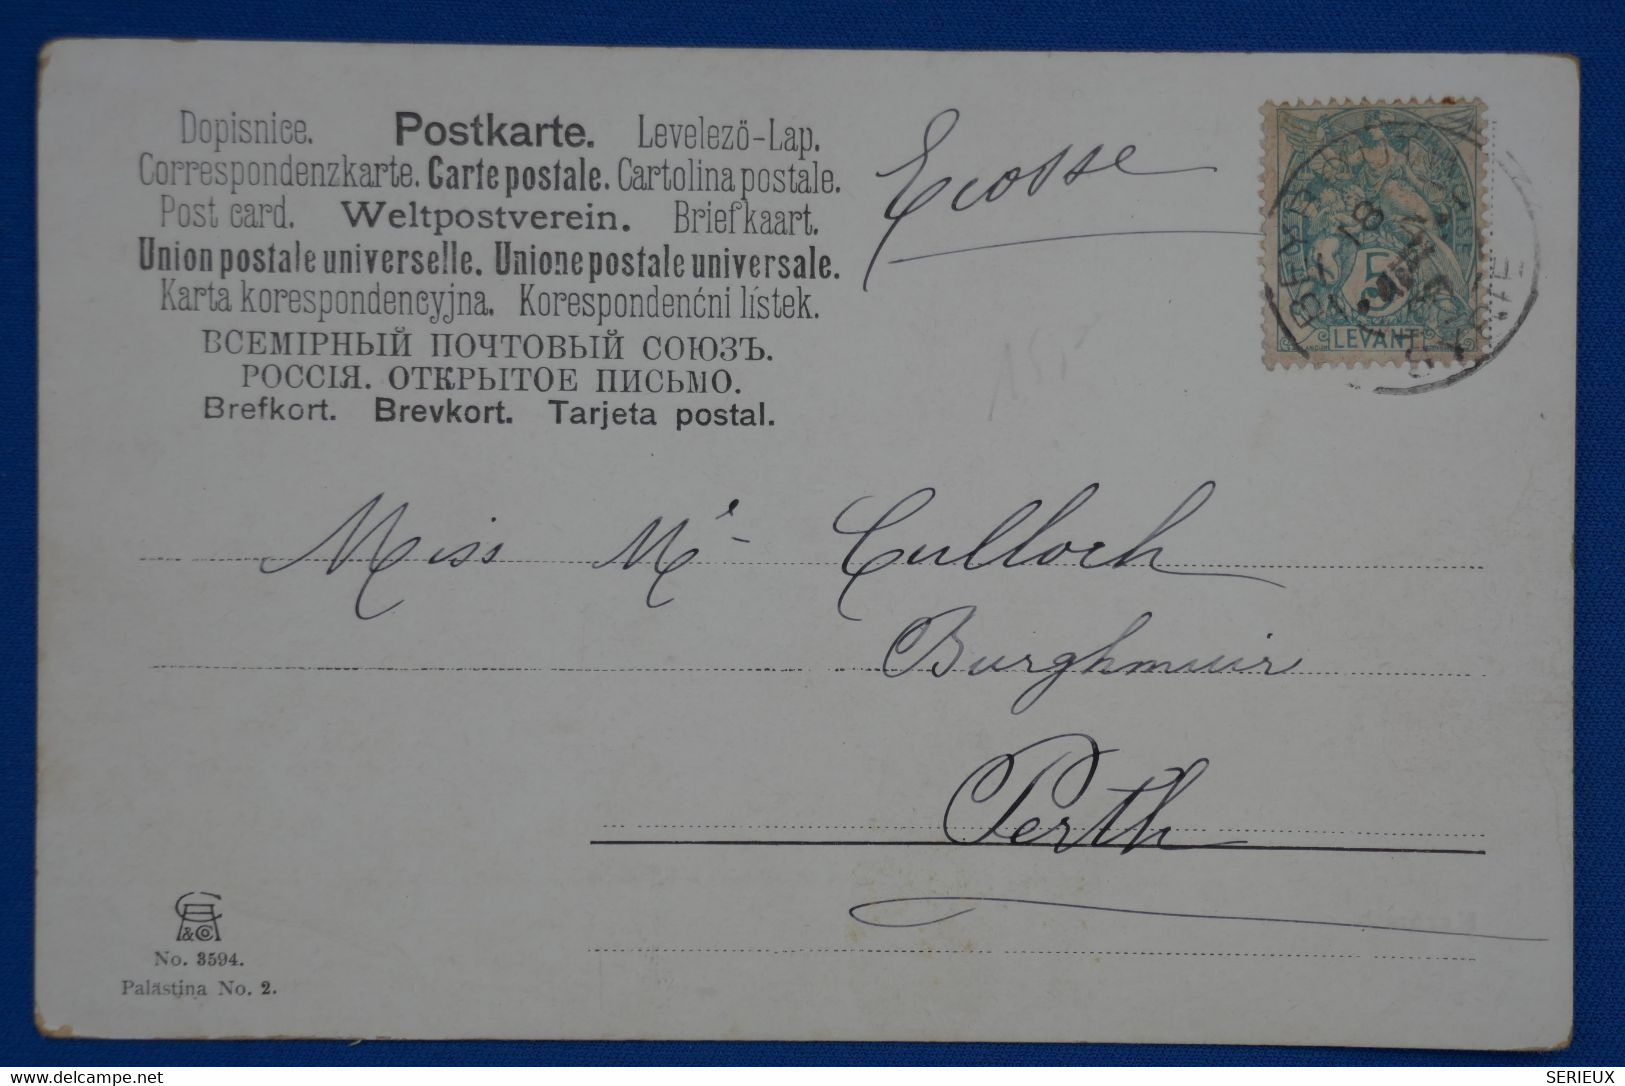 Dopisnice. Postkarte. Levelező-Lap.
Correspondenzkarte. Carte postale. Cartolina postale.
Post card. Weltpostverein. Briefkaart.
Union postale universelle. Unione postale universale.
Karta korespondencyjna. Korespondenční lístek.
ВСЕМІРНЫЙ ПОЧТОВЫЙ СОЮЗЪ.
РОССІЯ. ОТКРЫТОЕ ПИСЬМО.
Brefkort. Brevkort. Tarjeta postal.
Ecosse
5
LEVANT
BEYROUTH
18
Miss Mc Culloch
Burghmuir
Perth
&Co
No. 3594.
Palästina No. 2.
www.delcampe.net
SERIEUX